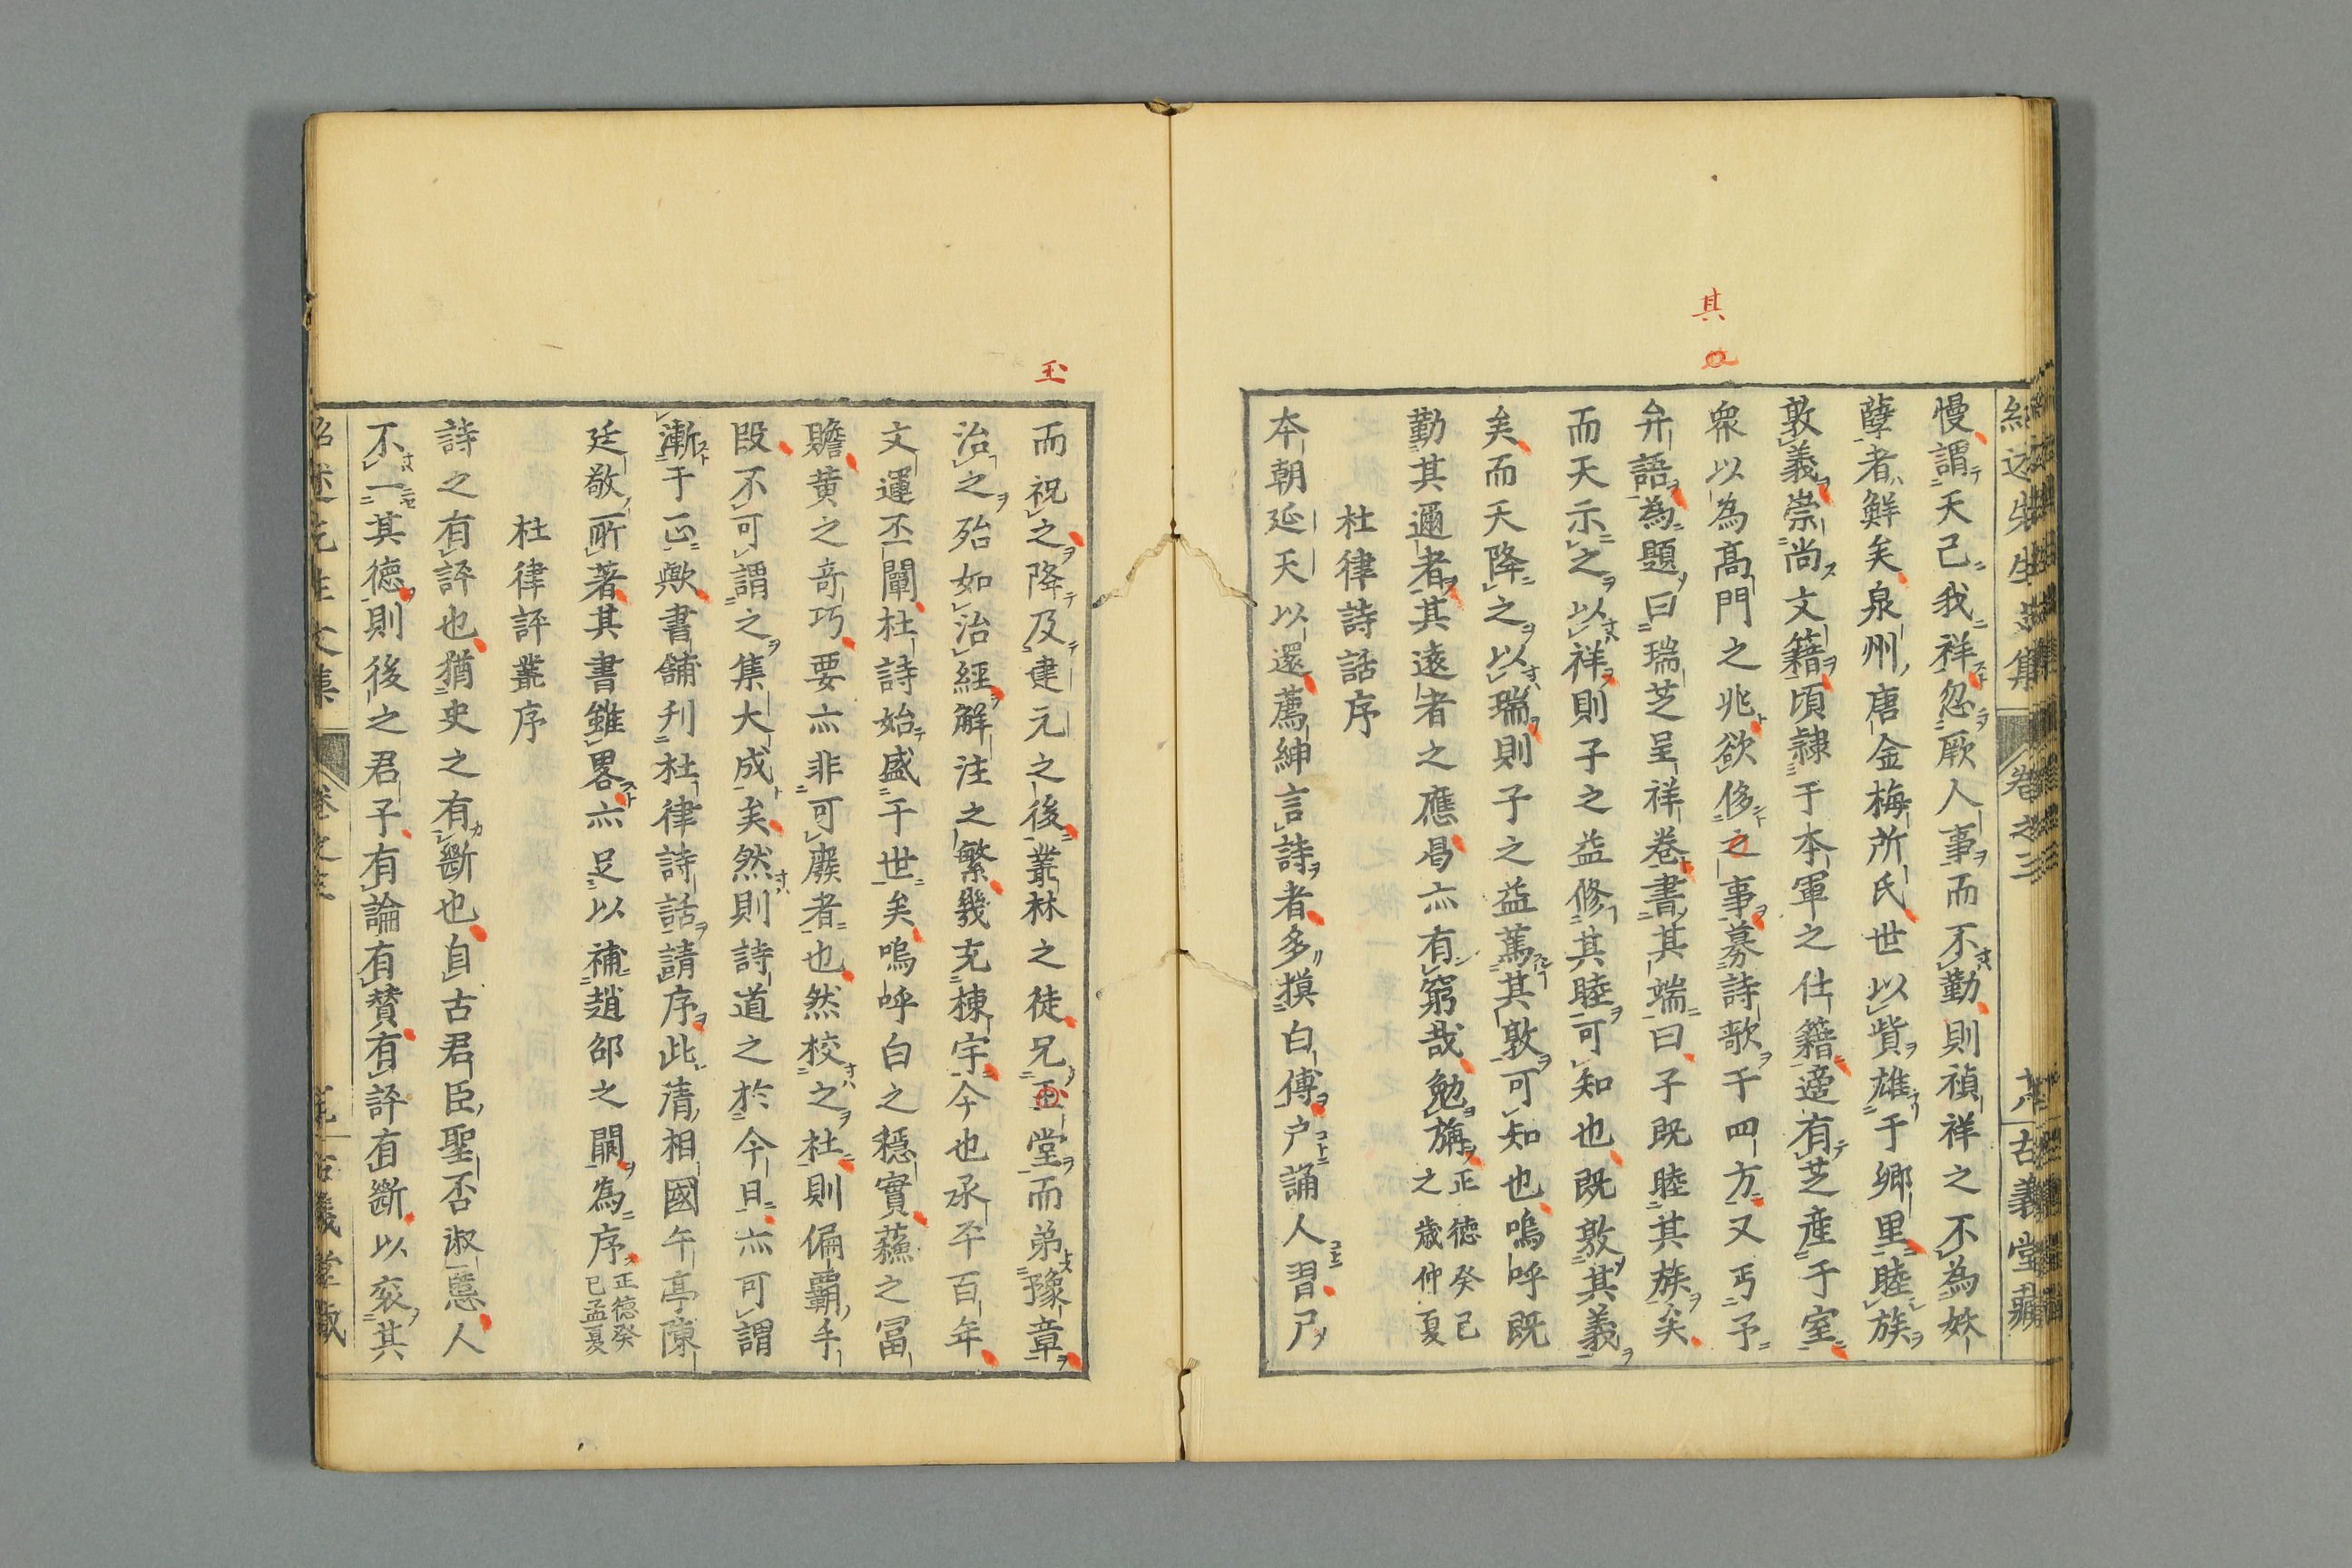 慢謂天己我祥忽厥人事而不勤則禎祥之不為妖
孽者鮮矣泉州唐金梅所氏世以貲雄于鄉里睦族
敦義崇尚文籍頃隷于本軍之仕籍適有芝産于室
衆以為高門之兆欲侈之事募詩歌于四方又丐予
其
弁語為題曰瑞芝呈祥卷書其端曰子既睦其族矣
而天示之以祥則子之益修其睦可知也既敦其義
矣而天降之以瑞則子之益篤其敦可知也嗚呼既
勤其邇者其遠者之應曷亦有窮哉勉旃正德癸巳
之歳仲夏
杜律詩話序
本朝延天以還薦紳言詩者多摸白傅户誦人習尸
而祝之降及建元之後叢林之徒兄玉堂而弟豫章
玉
治之殆如治經解注之繁幾充棟宇今也承平百年
文運丕闡杜詩始盛于世矣嗚呼白之穏實蘓之冨
贍黄之竒巧要亦非可廢者也然校之杜則偏覇手
段不可謂之集大成矣然則詩道之於今日亦可謂
漸于正歟書舗刋杜律詩話請序此清相國午亭陳
廷敬所著其書雖畧亦足以補趙邵之闕為序正德癸
巳孟夏
杜律評叢序
詩之有評也猶史之有斷也自古君臣聖否淑慝人
不一其德則後之君子有論有賛有評有斷以衮其
卷之三
古義堂藏